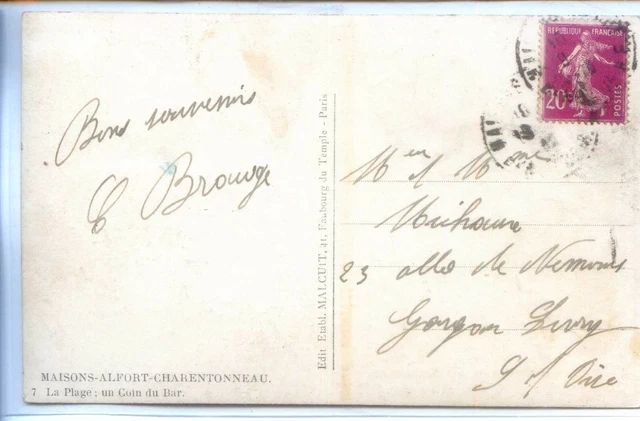 Bons souvenirs
Brouge
MAISONS-ALFORT-CHARENTONNEAU.
7 La Plage; un Coin du Bar.
Edit Etabl. MALCUIT, 41, Faubourg du Temple - Paris
REPUBLIQUE FRANÇAISE
20c
POSTES
Mr et Mme
23 allée de Nemours
Gargan Livry
S/Oise